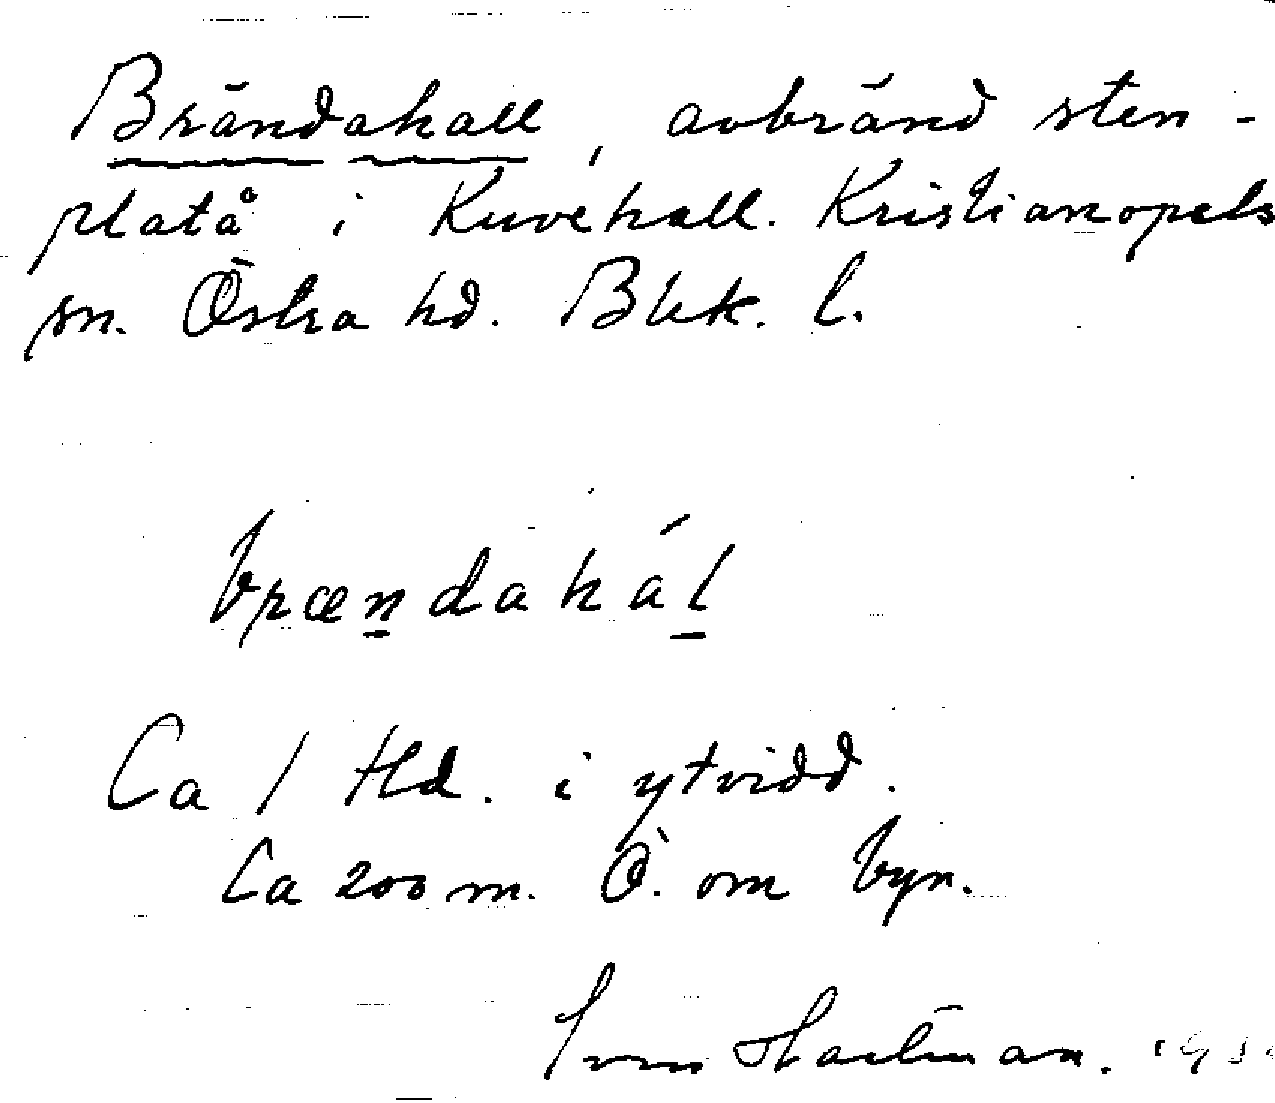 Brändahall, avbränd sten-
platå i Kuvehall. Kristianopels
sn. Östra hd. Blek. l.
brændahál
Ca 1 Hd. i ytvidd.
Ca 200 m. Ö. om byn.
Hartman.